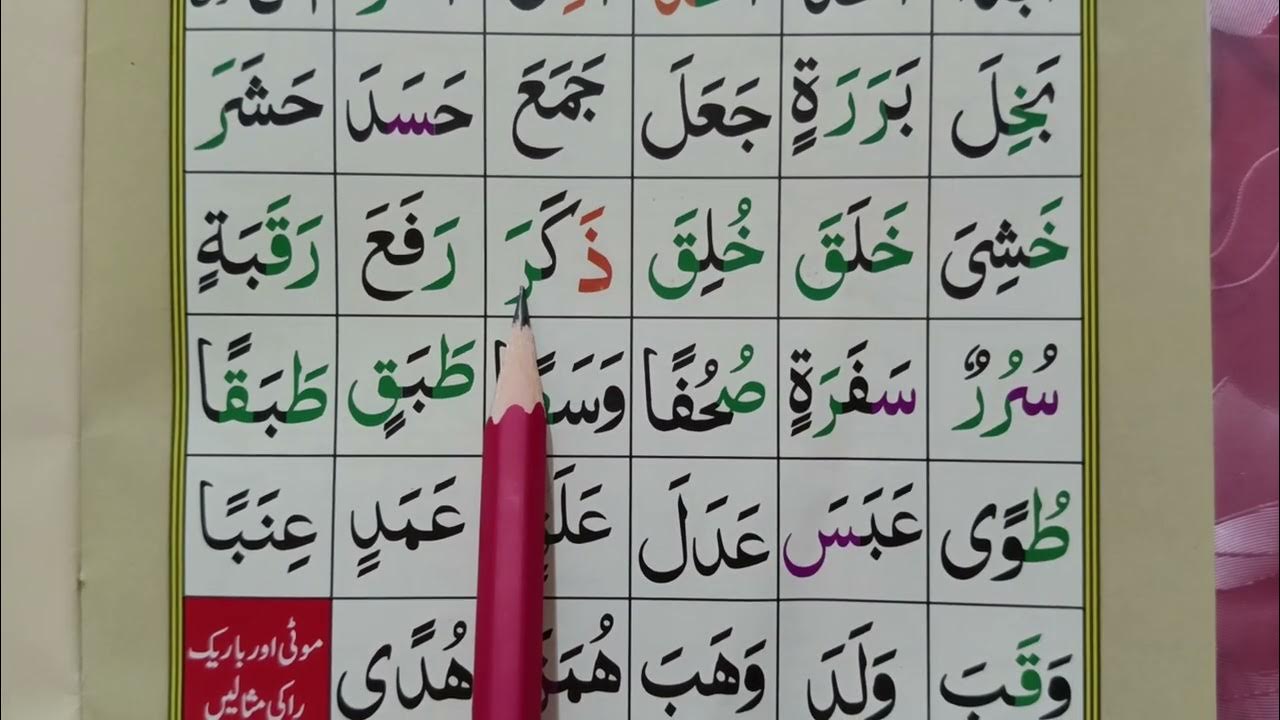 بَخِلَ بَرَرَةٍ جَعَلَ جَمَعَ حَسَدَ حَشَرَ
خَشِیَ خَلَقَ خُلِقَ ذَكَرَ رَفَعَ رَقَبَةٍ
سُرُرٌ سَفَرَةٍ صُحُفًا طَبَقٍ طَبَقًا
طُوًی عَبَسَ عَدَلَ عَمَدٍ عِنَبًا
وَقَبَ وَلَدَ وَهَبَ هُدًی موٹی اور باریک
را کی مثالیں